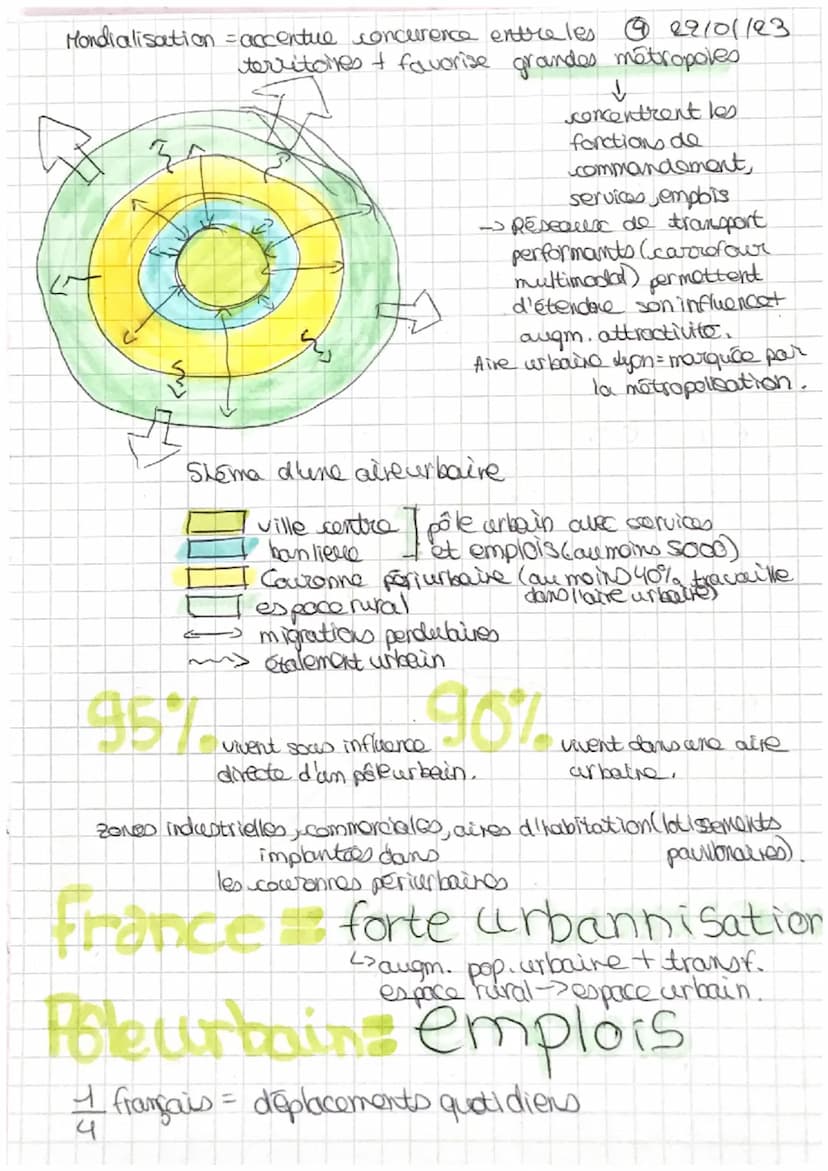 Mondialisation = accentue concurence entre les ④ 22/01/23
territoires + favorise grandes métropoles
↓
concentrent les
fonctions de
commandement,
services, emplois
-> Réseaux de transport
performants (carrefour
multimodal) permettent
d'étendre son influence +
augm. attractivité.
Aire urbaine Lyon = marquée par
la métropolisation.
Shéma d'une aire urbaine
ville centre ] pôle urbain avec services
banlieue et emplois (au moins 5000)
Couronne périurbaine (au moins 40% travaille
dans l'aire urbaine)
espace rural
migrations pendulaires
étalement urbain
95% vivent sous influence
directe d'un pôle urbain.
90% vivent dans une aire
urbaine.
zones industrielles, commerciales, aires d'habitation (lotissements
implantées dans pavillonaires).
les couronnes périurbaines
france = forte urbannisation
↳ augm. pop. urbaine + transf.
espace rural -> espace urbain.
Pôle urbain = emplois
1/4 français = déplacements quotidiens